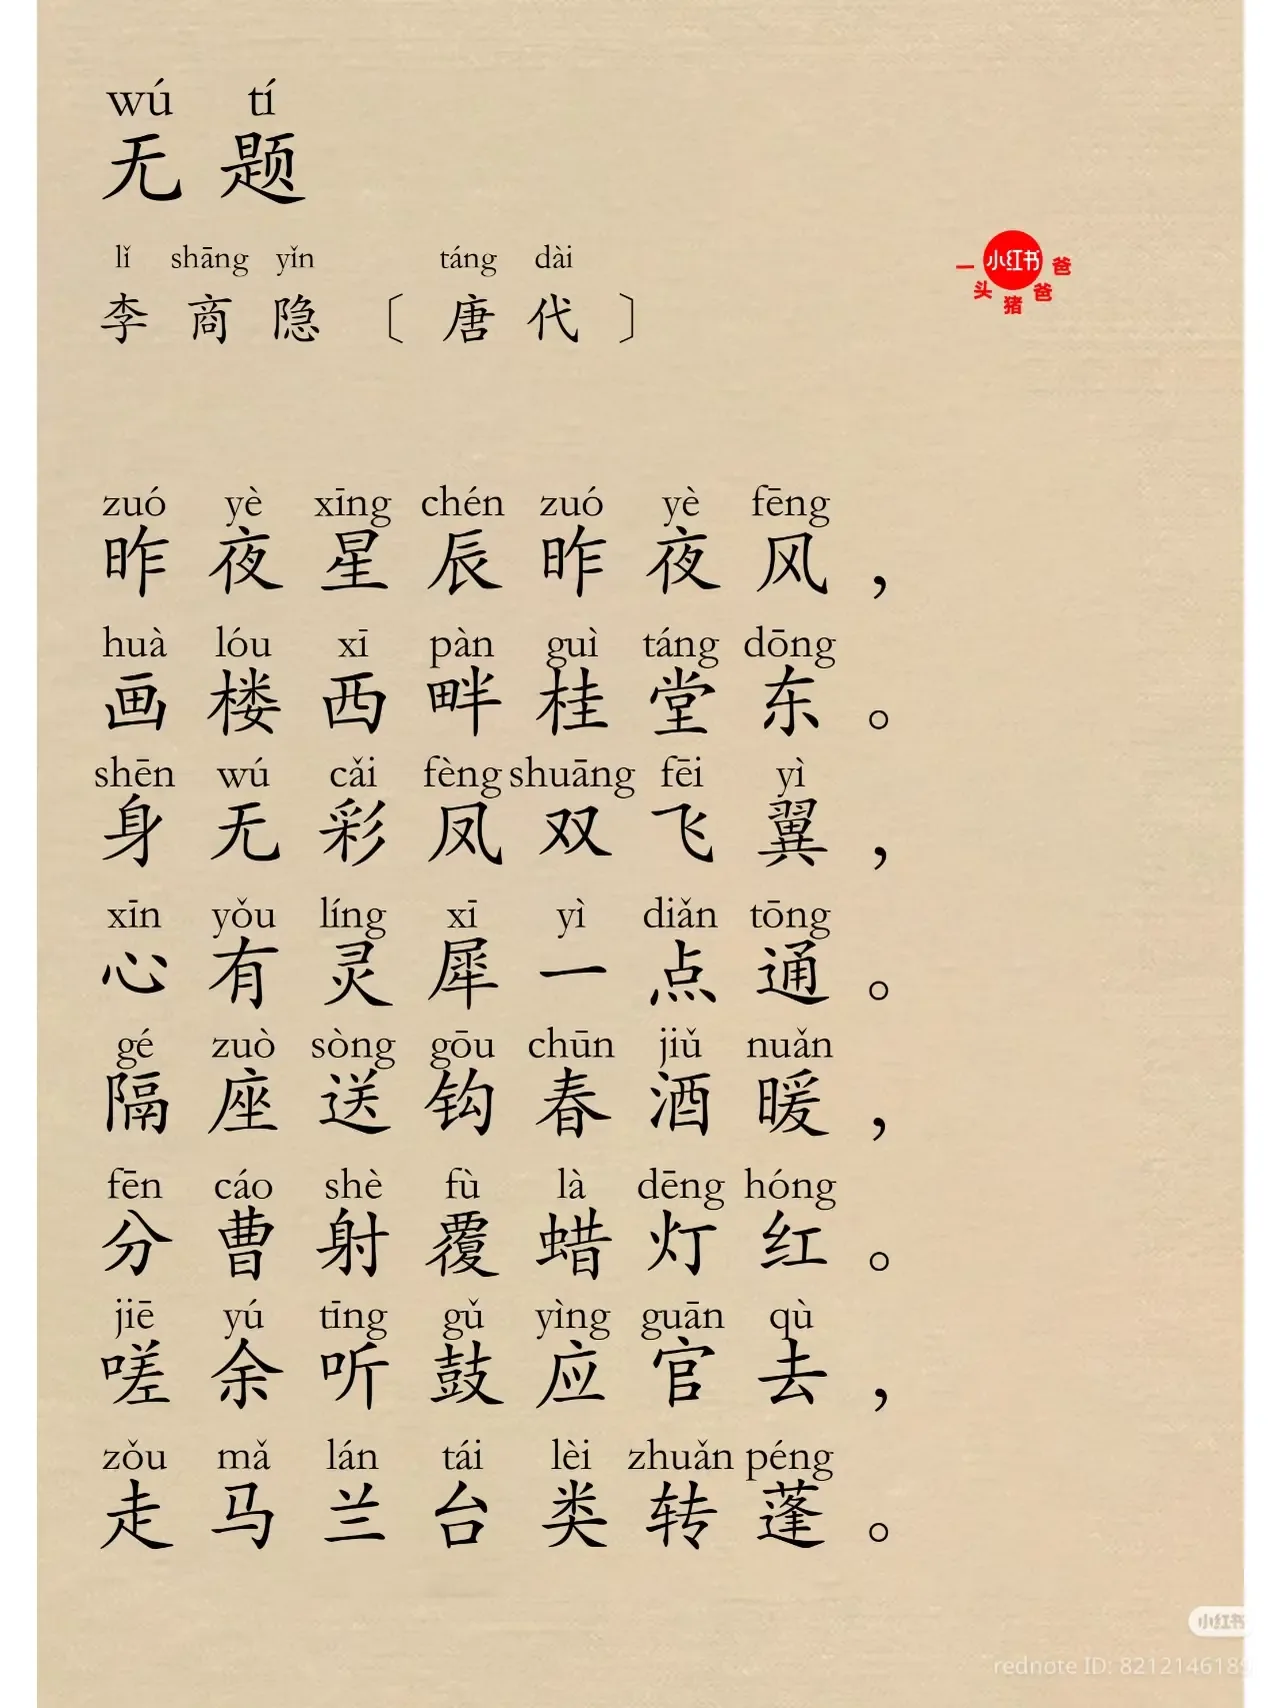 wú tí
无题
lǐ shāng yǐn táng dài
李商隐〔唐代〕
小红书
一头猪爸爸
zuó yè xīng chén zuó yè fēng
昨夜星辰昨夜风，
huà lóu xī pàn guì táng dōng
画楼西畔桂堂东。
shēn wú cǎi fèng shuāng fēi yì
身无彩凤双飞翼，
xīn yǒu líng xī yì diǎn tōng
心有灵犀一点通。
gé zuò sòng gōu chūn jiǔ nuǎn
隔座送钩春酒暖，
fēn cáo shè fù là dēng hóng
分曹射覆蜡灯红。
jiē yú tīng gǔ yìng guān qù
嗟余听鼓应官去，
zǒu mǎ lán tái lèi zhuǎn péng
走马兰台类转蓬。
小红书
rednote ID: 8212146189